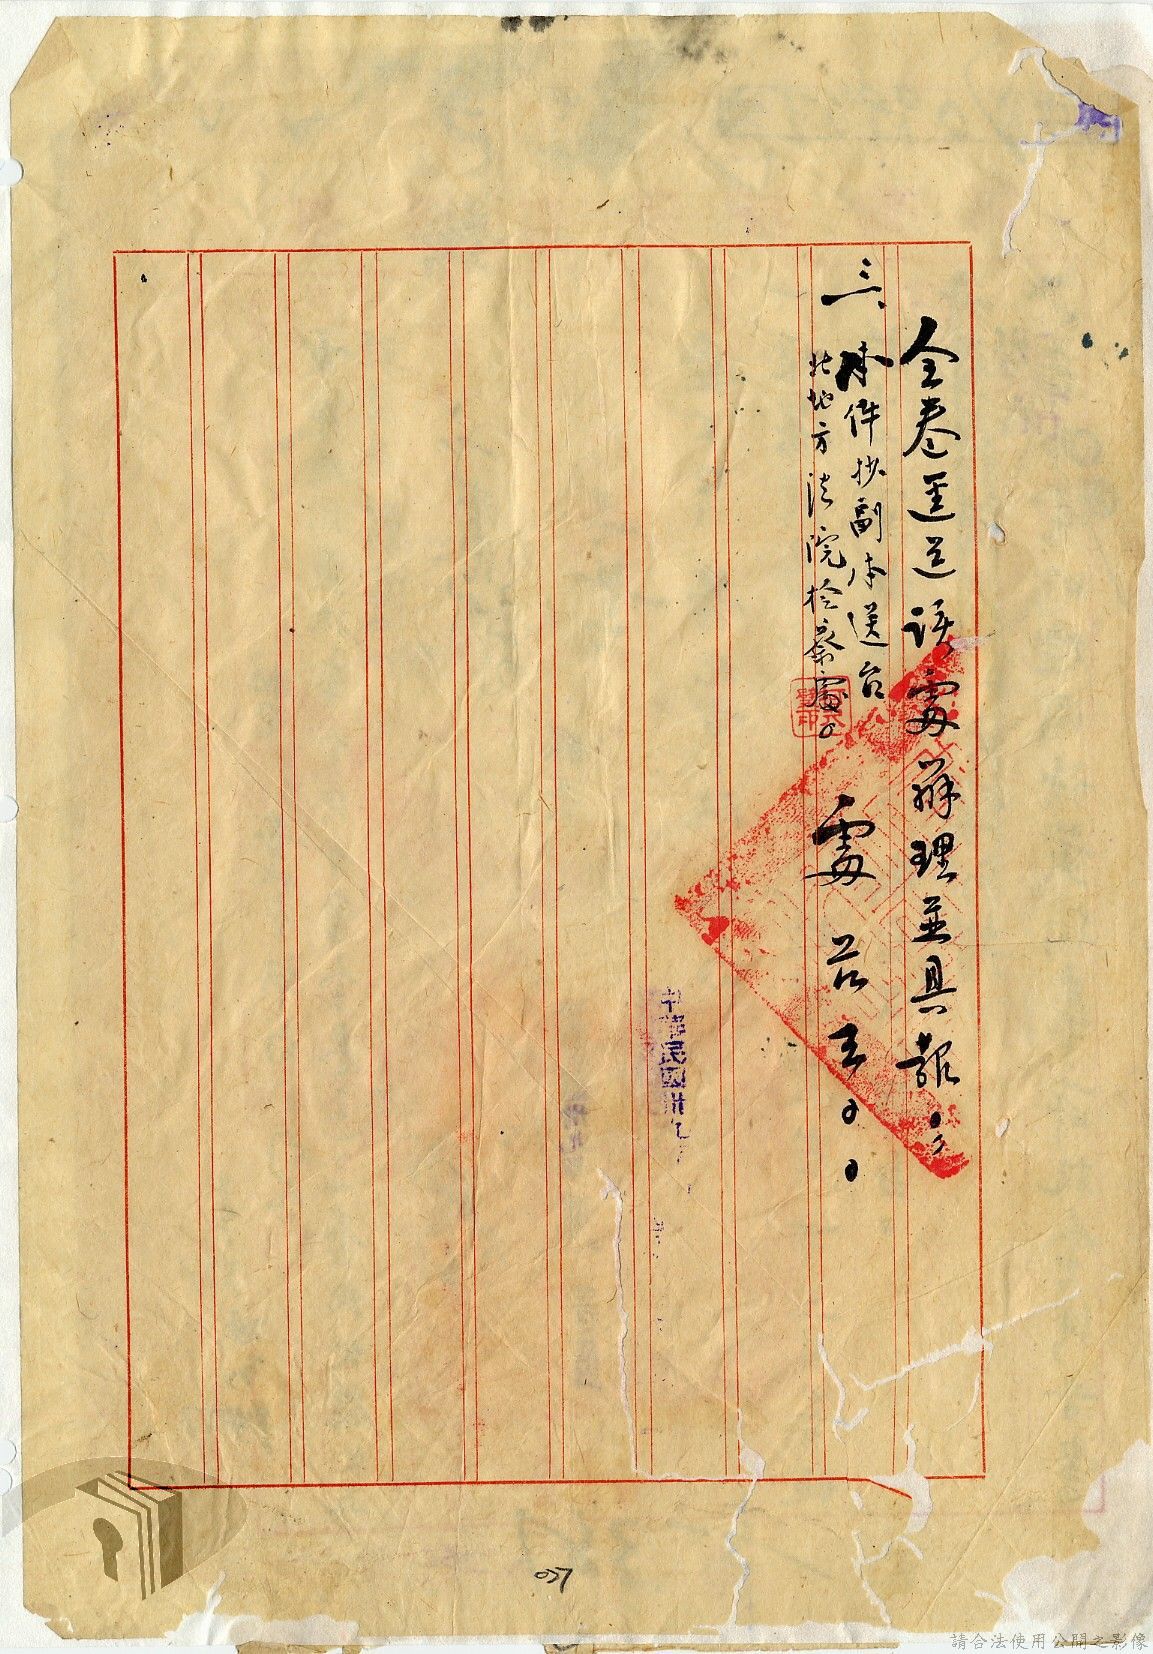 全卷逕送該處辦理並具報。
三、本件抄副本送台
北地方法院檢察處。
中華民國卅
027
請合法使用公開之影像